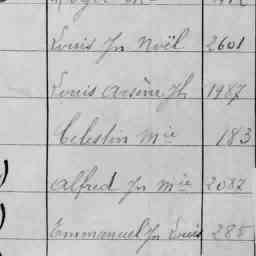 Louis Jn Noël 2601
Louis Arsène Jh 1987
Celestin Mie 183
Alfred Jn Mie 2087
Emmanuel Jn Louis 285